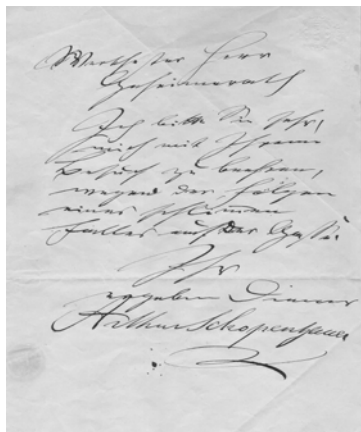 Werthester Herr
Geheimerath
Ich bitte Sie sehr,
mich mit Ihrem
Besuch zu beehren,
wegend der Folgen
eines schlimmen
Falles auf der Gasse.
Ihr
ergebener Diener
Arthur Schopenhauer